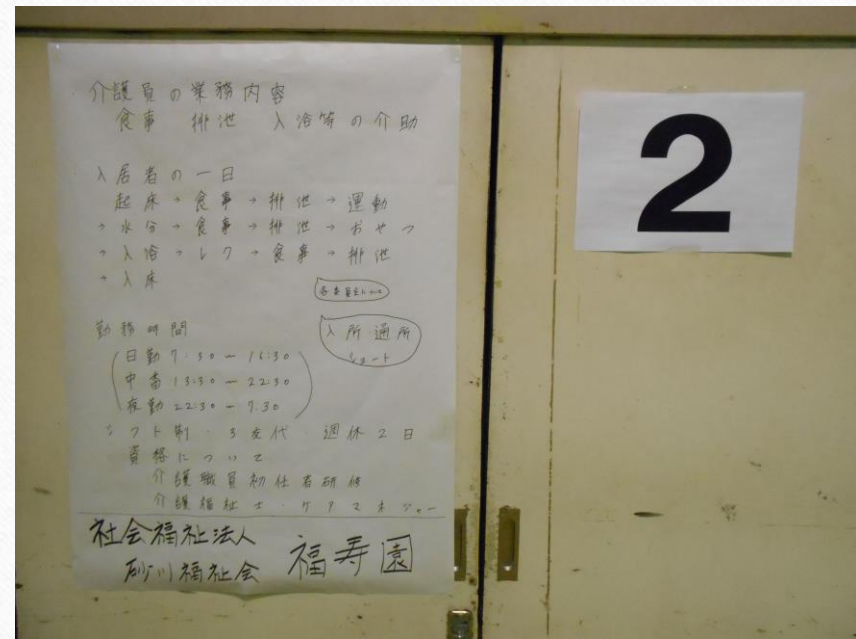 介護員の業務内容
食事 排泄 入浴等の介助
入居者の一日
起床→食事→排泄→運動
→水分→食事→排泄→おやつ
→入浴→レク→食事→排泄
→入床
勤務時間
日勤 7:30~16:30
中番 13:30~22:30
夜勤 22:30~7:30
入所通所
ショート
シフト制・3交代 週休2日
資格について
介護職員初任者研修
介護福祉士・ケアマネジャー
社会福祉法人
砂川福祉会 福寿園
2